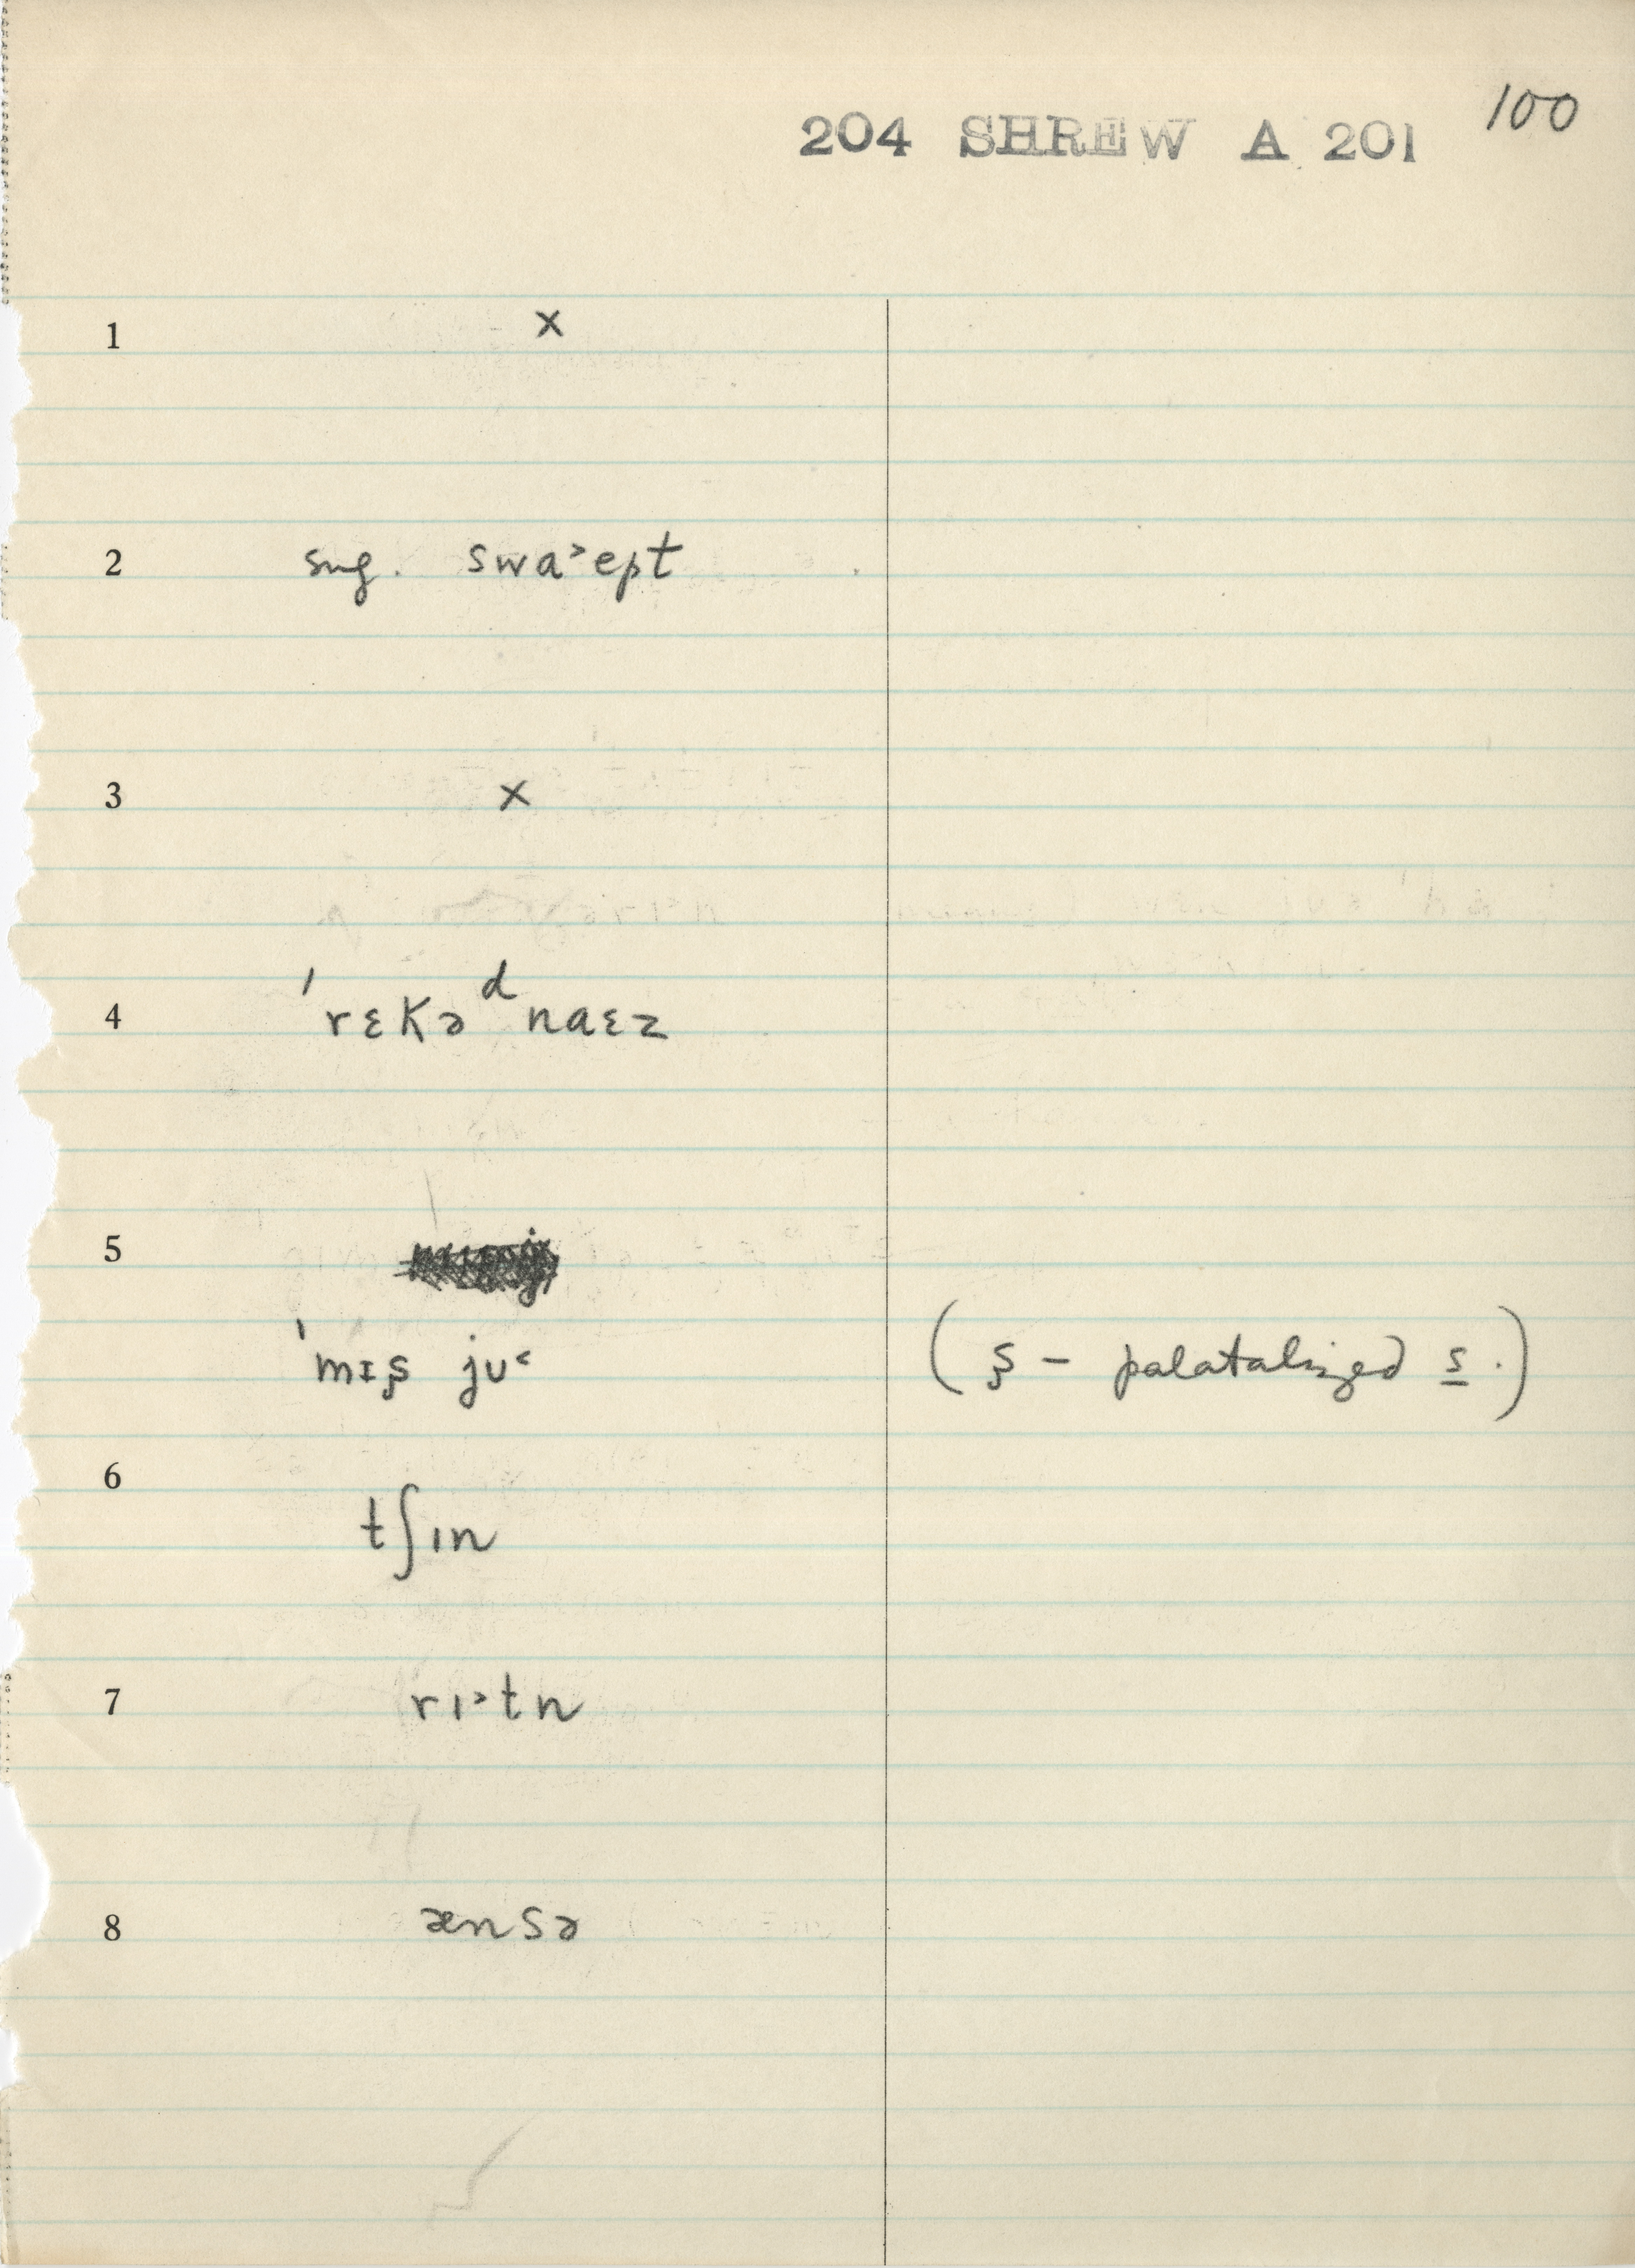 100
204 SHREW A 201
1 x
2 sug. swa˃ept
3 x
4 ˈrɛkəᵈnaɛz
5
ˈmɪʂ ju˂
(ʂ – palatalized s.)
6 tʃın
7 rı˃tn
8 ænsə